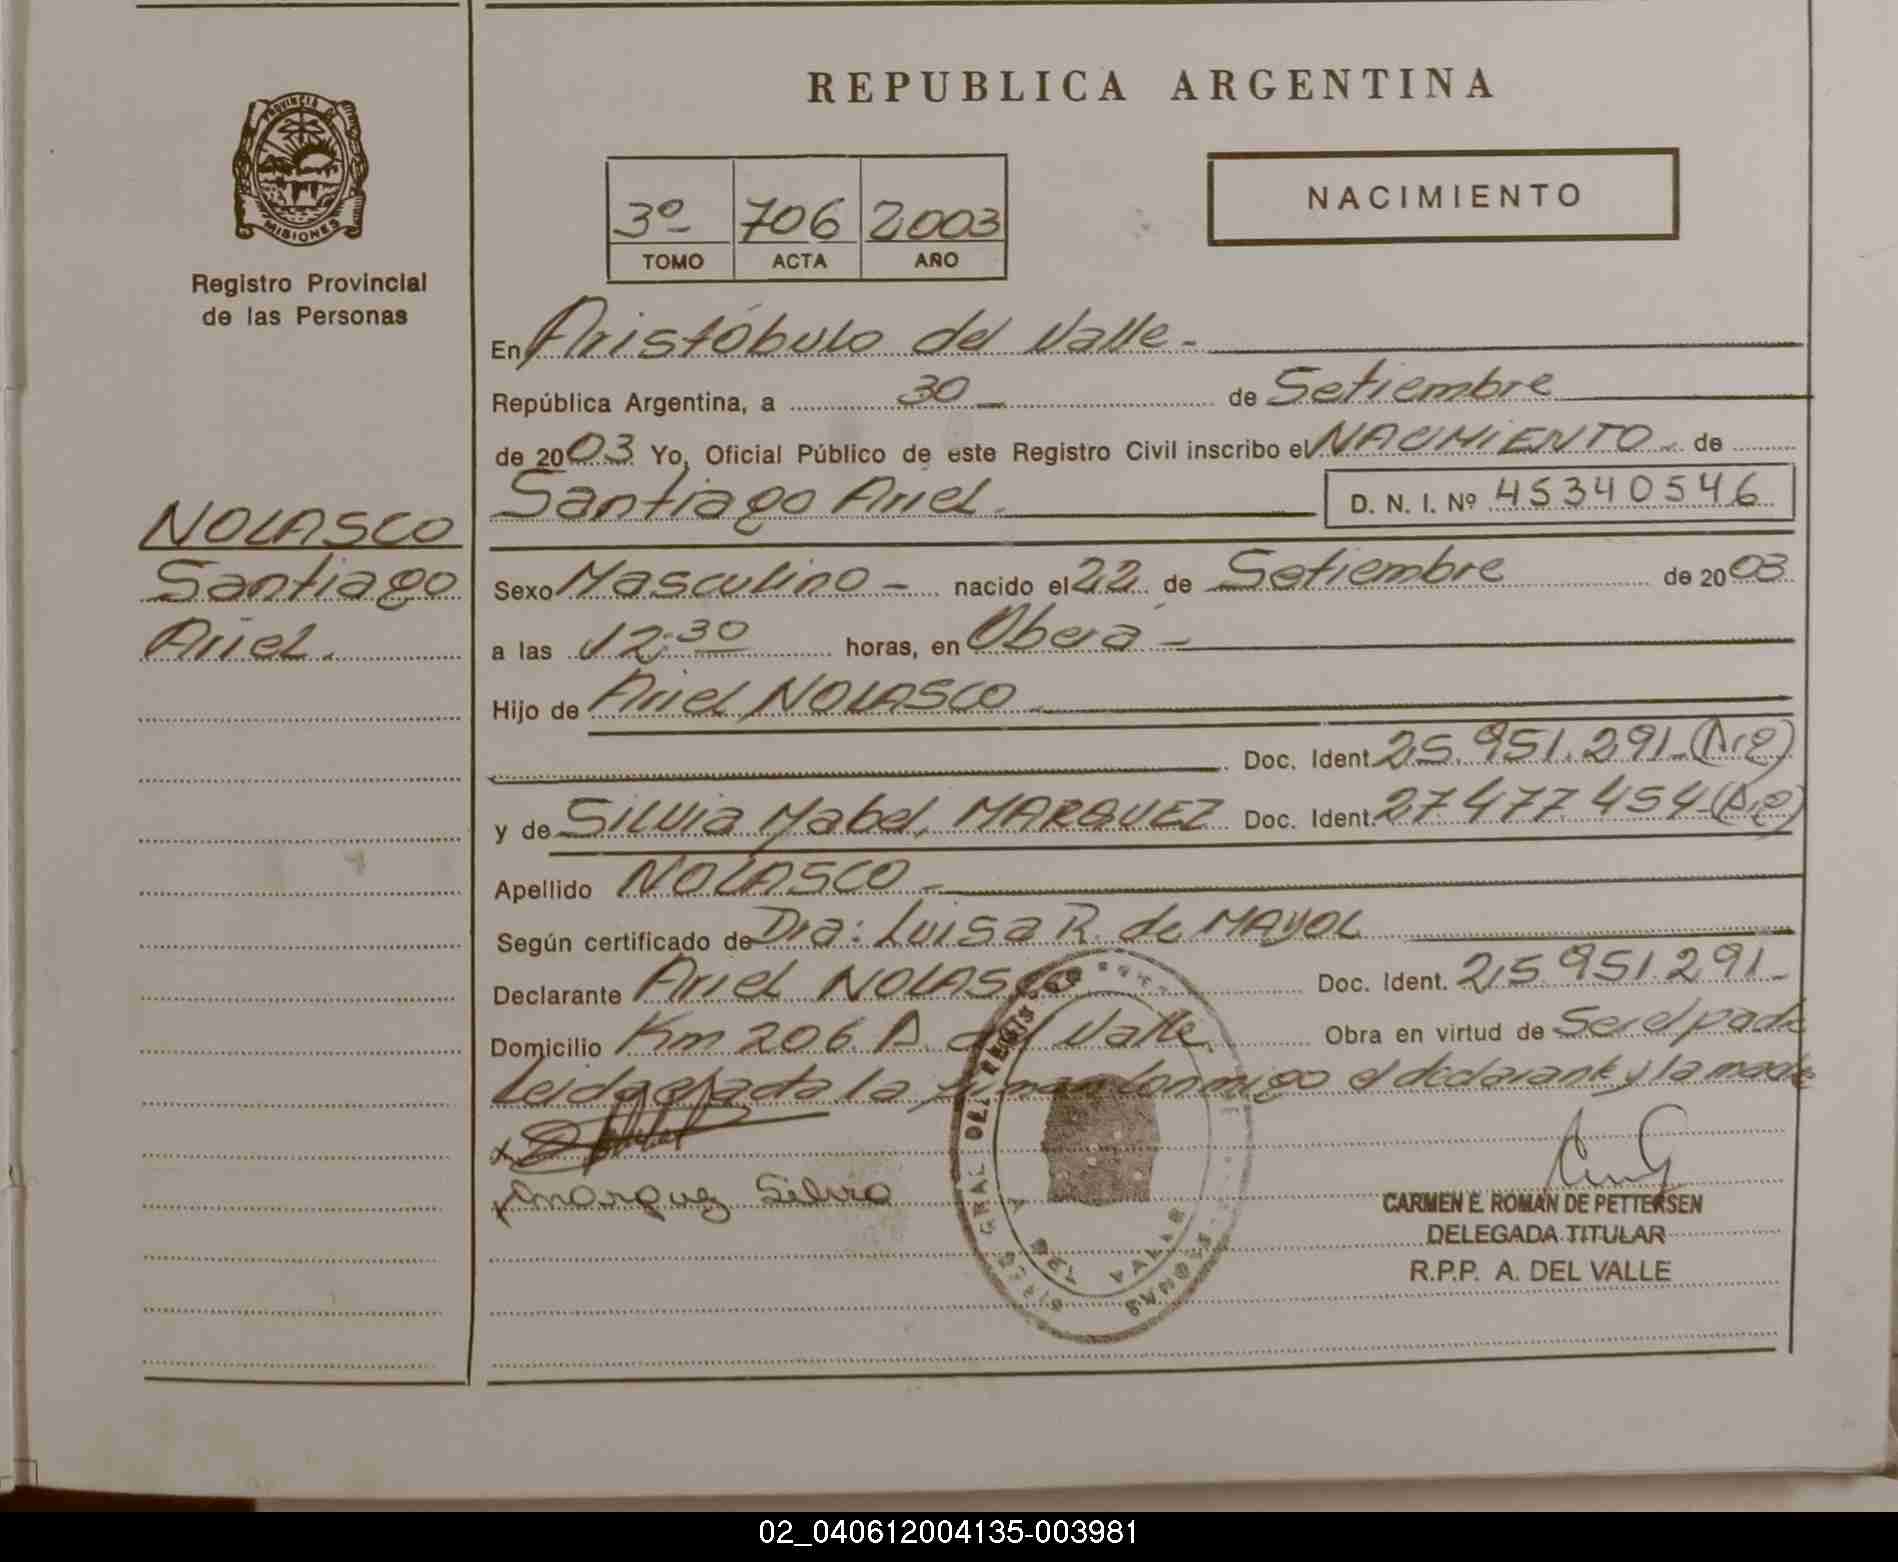 REPUBLICA ARGENTINA
PROVINCIA DE
MISIONES
Registro Provincial
de las Personas
3º 706 2003
TOMO ACTA AÑO
NACIMIENTO
NOLASCO
Santiago
Ariel.
En Aristóbulo del Valle -
República Argentina, a 30 de Setiembre
de 2003 Yo, Oficial Público de este Registro Civil inscribo el NACIMIENTO de
Santiago Ariel. D. N. I. Nº 45340546
Sexo Masculino - nacido el 22 de Setiembre de 2003
a las 12:30 horas, en Oberá -
Hijo de Ariel NOLASCO
Doc. Ident. 25.951.291
y de Silvia Mabel MARQUEZ Doc. Ident. 27 477 454
Apellido NOLASCO -
Según certificado de Dra: Luisa R. de MAYOL
Declarante Ariel NOLASCO Doc. Ident. 25 951.291 -
Domicilio Km 206 A. del Valle. Obra en virtud de Ser el padre
Leida el acta la firman conmigo el declarante y la madre
x
x Marquez Silvia
DEL VALLE
CARMEN E. ROMAN DE PETTERSEN
DELEGADA TITULAR
R.P.P. A. DEL VALLE
02_040612004135-003981